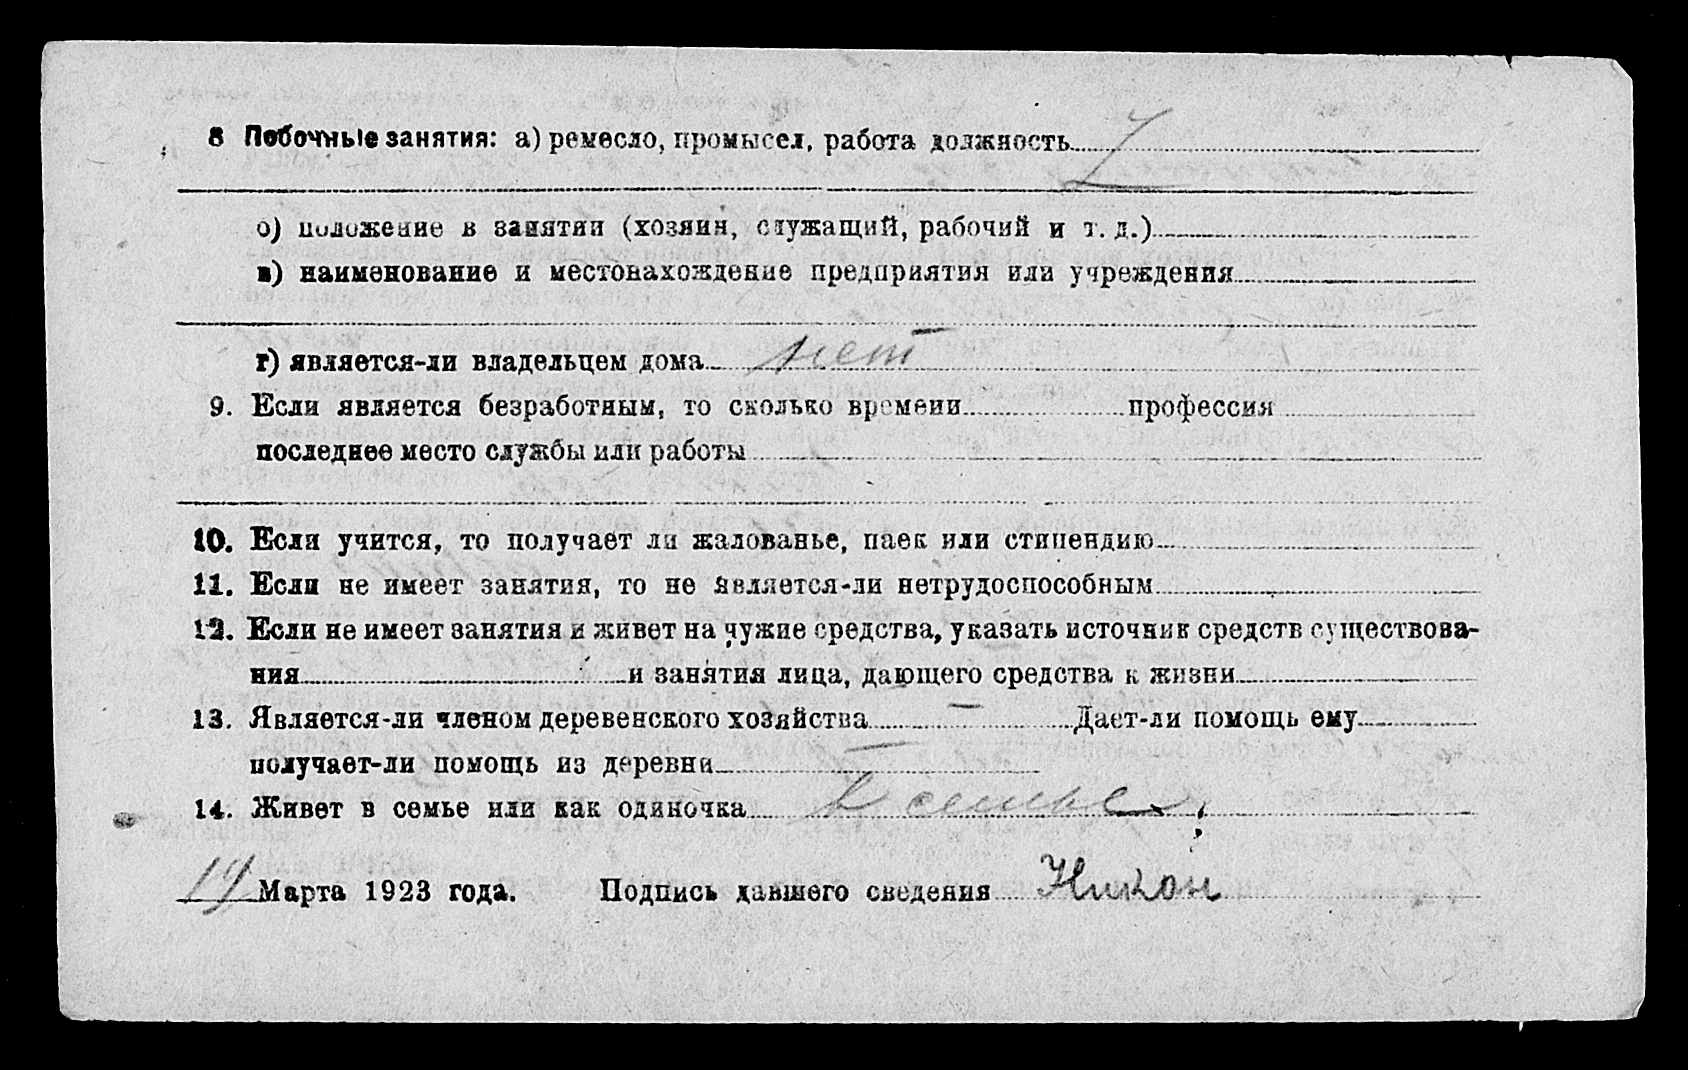 8 Побочные занятия: а) ремесло, промысел, работа должность
б) положение в занятии (хозяин, служащий, рабочий и т. д.)
в) наименование и местонахождение предприятия или учреждения
г) является-ли владельцем дома нет
9. Если является безработным, то сколько времени профессия
последнее место службы или работы
10. Если учится, то получает ли жалованье, паек или стипендию
11. Если не имеет занятия, то не является-ли нетрудоспособным
12. Если не имеет занятия и живет на чужие средства, указать источник средств существова-
ния и занятия лица, дающего средства к жизни
13. Является-ли членом деревенского хозяйства — Дает-ли помощь ему
получает-ли помощь из деревни —
14. Живет в семье или как одиночка в семье
19 Марта 1923 года. Подпись давшего сведения Никон